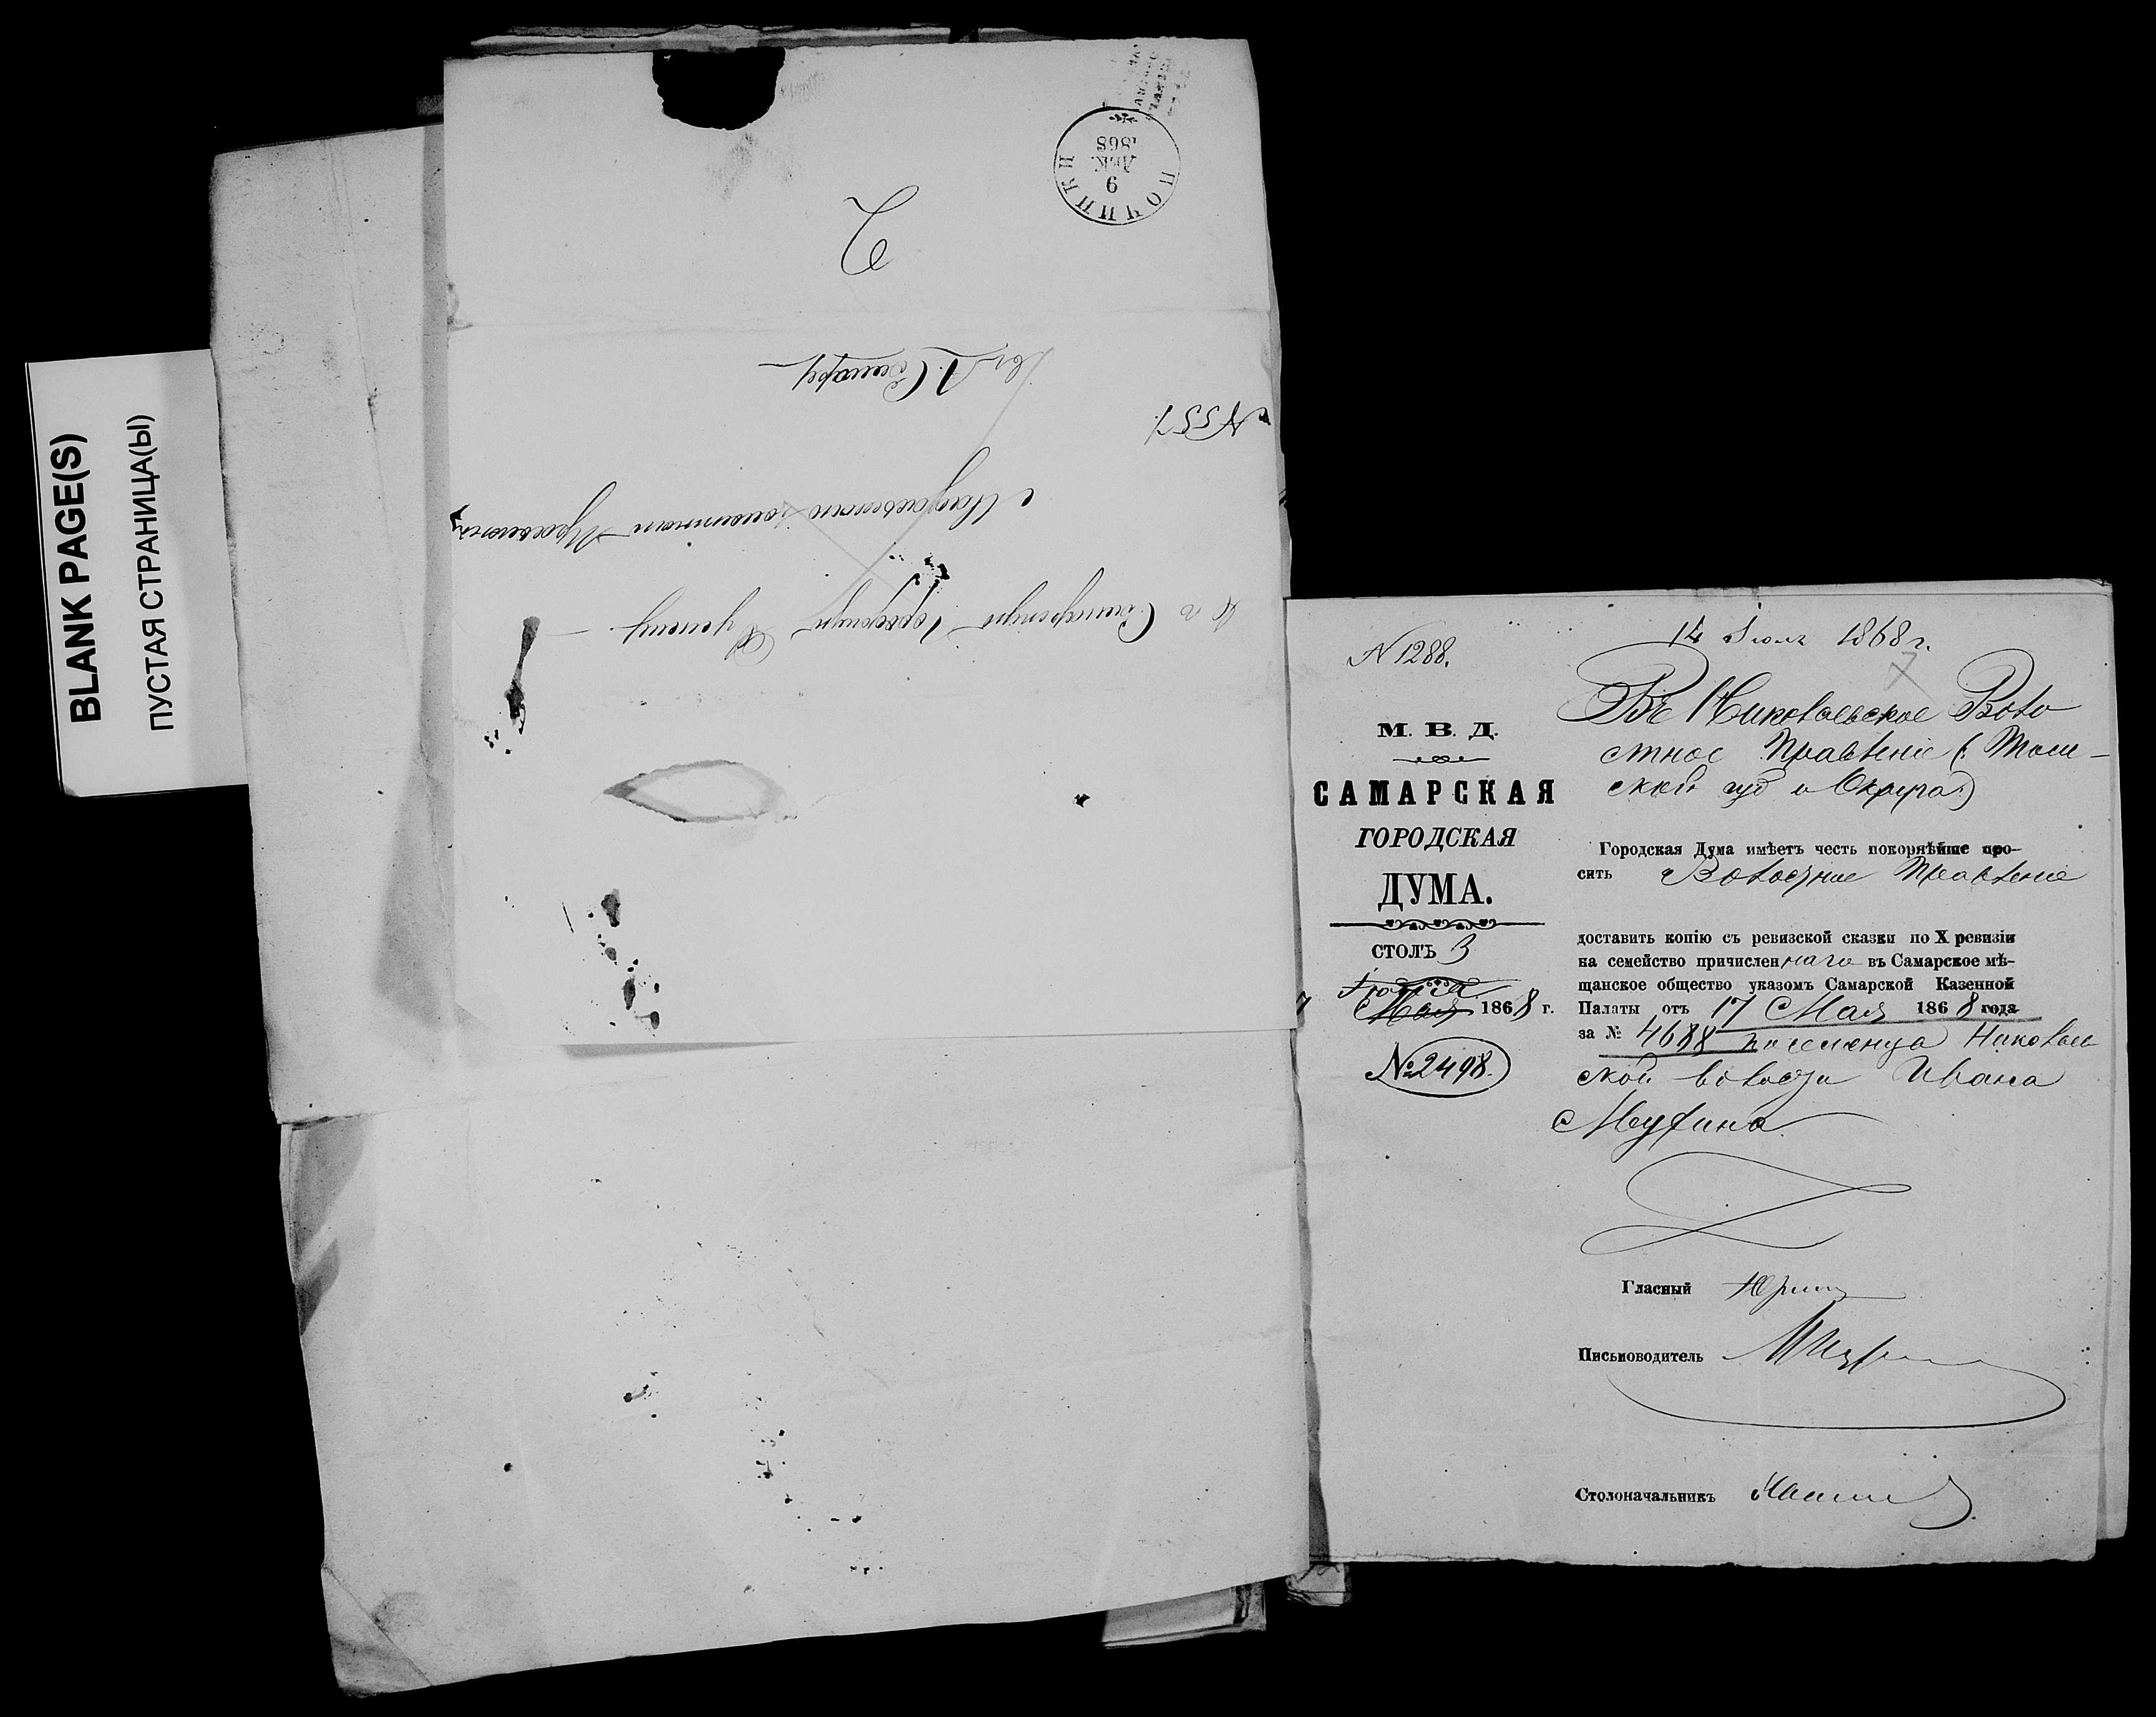 BLANK PAGE(S)
ПУСТАЯ СТРАНИЦА(Ы)
ПОЧИНКИ
9
ДЕК.
1868
2
Въ Самару
№ 557.
Въ Самарскую Городскую Думу
N 1288.
М. В. Д.
САМАРСКАЯ
ГОРОДСКАЯ
ДУМА.
СТОЛЪ 3
Мая 1868 г.
№ 2498.
14 Іюля 1868 г.
Въ Николаевское Воло
стное Правленіе (: Том-
ской губ и Округа :)
Городская Дума имѣетъ честь покорнѣйше про-
сить Волостное Правленіе
доставить копію съ ревизской сказки по X ревизіи
на семейство причисленнаго въ Самарское мѣ-
щанское общество указомъ Самарской Казенной
Палаты отъ 17 Мая 1868 года
за № 4688 поселенца Николаев
ской волости Ивана
Гласный Юринъ
Письмоводитель
Столоначальникъ